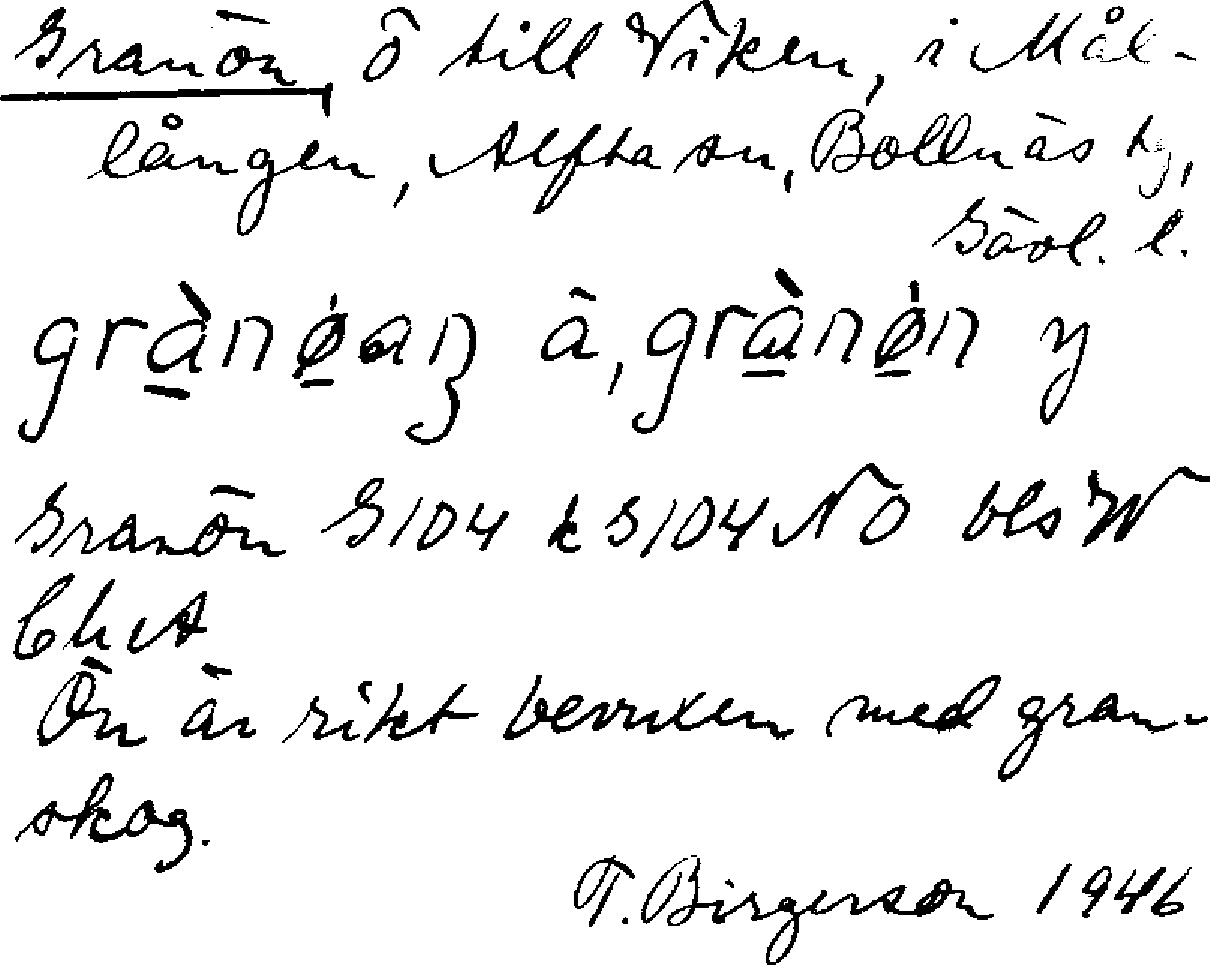 Granön, ö till Viken, i Mål-
lången, Alfta sn, Bollnäs tg,
Gävl. l.
grànø̀an ä, grànø̀n y
Granön G104 k G104 NO bls W
Ch A
Ön är rikt bevuxen med gran-
skog.
T. Birgerson 1946